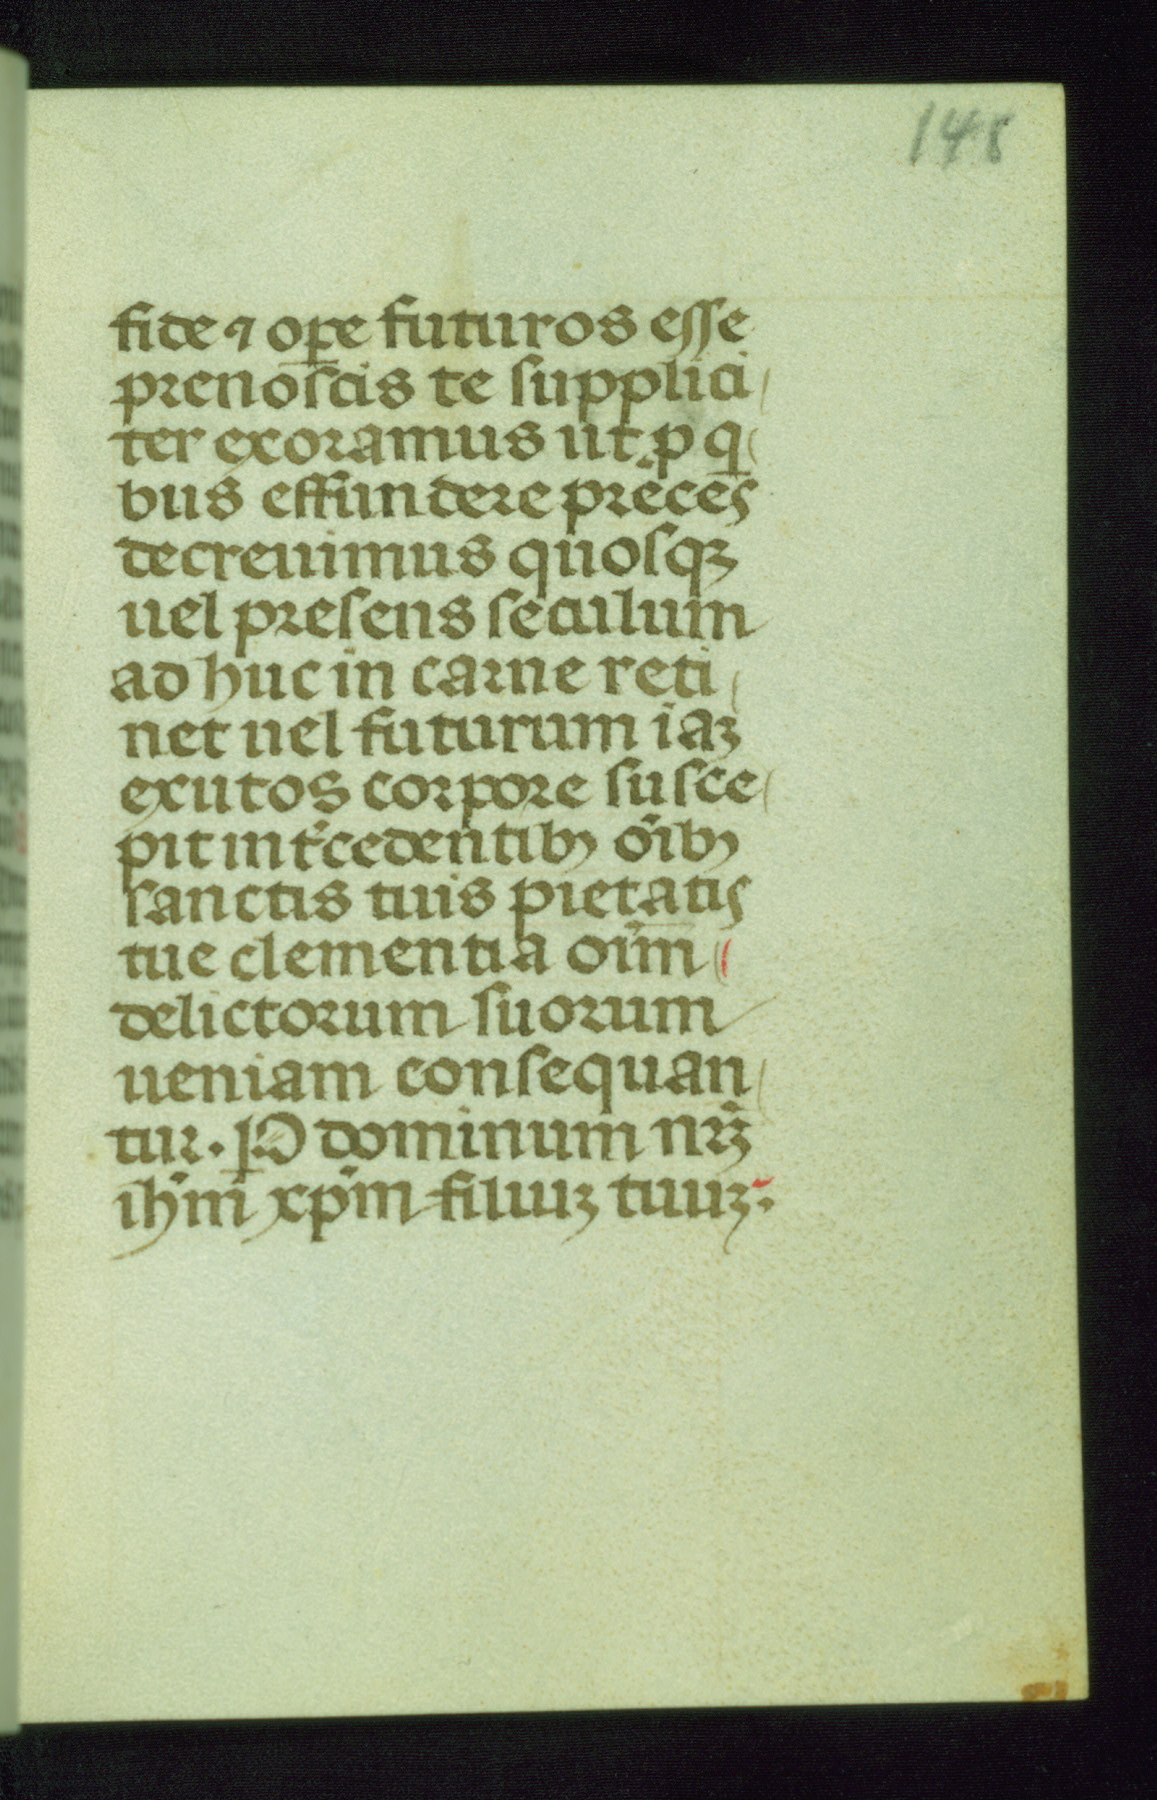 148
fide ⁊ oꝑe futuros esse
prenoscis te supplici
ter exoramus ut ꝓ q̇
bus effundere preces
decreuimus quosqꝫ
uel presens seculum
ad huc in carne reti
net uel futurum iaꝫ
exutos corpore susce
pit int̄cedentibꝫ oīb̄ꝫ
sanctis tuis pietatis
tue clementia oīum
delictorum suorum
ueniam consequan
tur. Ꝑ dominum nr̄ꝫ
ih̄m xp̄m filiuꝫ tuuꝫ.